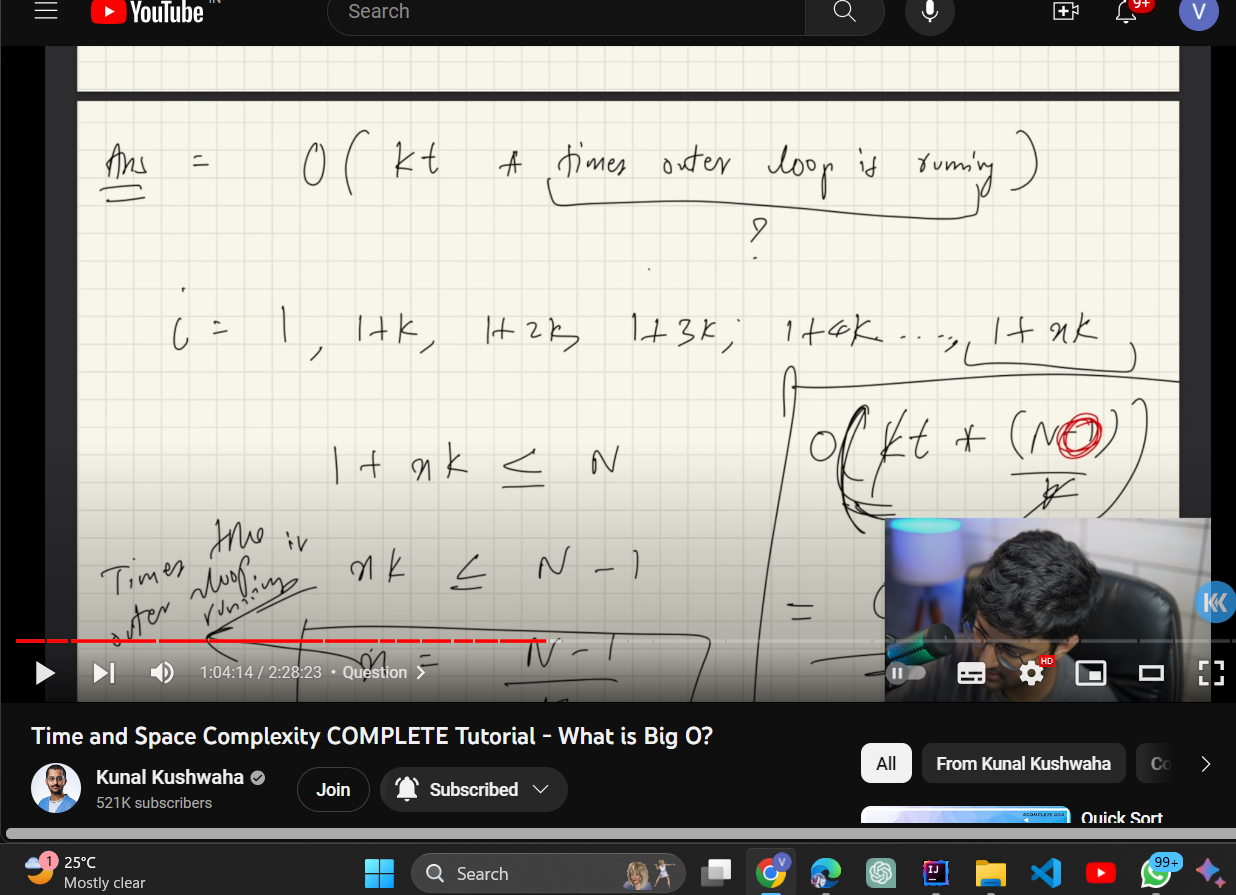 YouTube IN
Search
9+
V
Ans = O( kt * times outer loop is running )
?
i = 1, 1+k, 1+2k, 1+3k, 1+4k ...., 1+xk
1 + xk ≤ N
O( kt * (N-1) / k )
Times the
outer loop is
running
xk ≤ N - 1
=
x = N - 1
1:04:14 / 2:28:23 • Question
HD
Time and Space Complexity COMPLETE Tutorial - What is Big O?
Kunal Kushwaha
521K subscribers
Join
Subscribed
All
From Kunal Kushwaha
Co
Quick Sort
1
25°C
Mostly clear
Search
V
IJ
99+